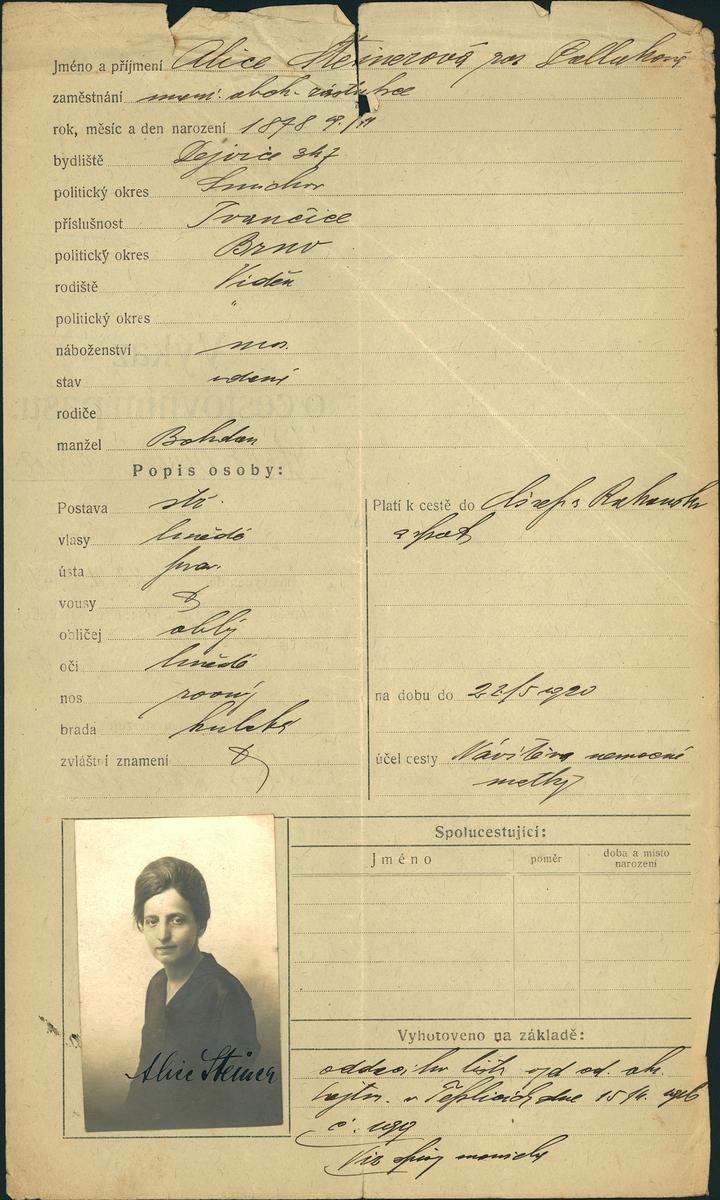 Jméno a příjmení Alice Steinerová roz.
zaměstnání obch. zástupce
rok, měsíc a den narození 1878
bydliště Dejvice 347
politický okres Smíchov
příslušnost Ivančice
politický okres Brno
rodiště Vídeň
politický okres "
náboženství mos.
stav vdaná
rodiče
manžel Bohdan
Popis osoby:
Postava stř.
vlasy hnědé
ústa
vousy
obličej oblý
oči hnědé
nos rovný
brada kulatá
zvláštní znamení
Platí k cestě do Rakouska
a zpět
na dobu do 22/5 1920
účel cesty Návštěva nemocné
matky
Spolucestující:
Jméno poměr doba a místo narození
Vyhotoveno na základě:
oddacího listu od
v Teplicích dne 15
č.
Viz spisy
Alice Steiner